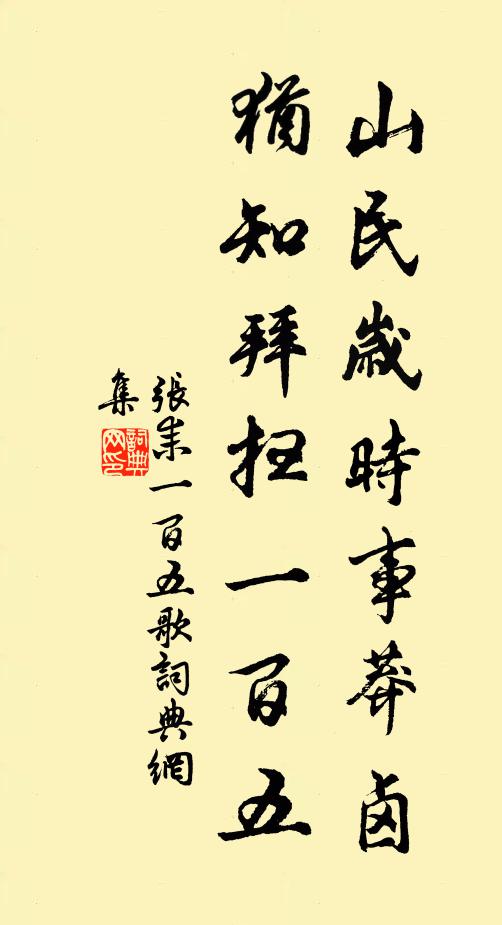 山民歲時事莽鹵
猶知拜扫一百五
張耒一百五歌詞典網
集
詞典
网印